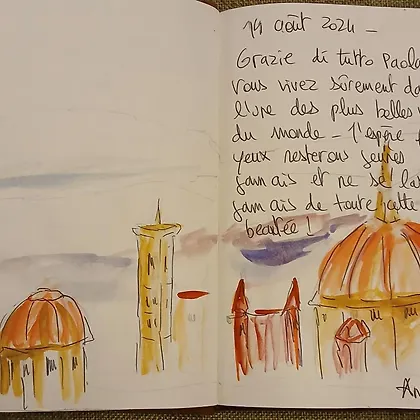 19 août 2024 -
Grazie di tutto Paola
vous vivez sûrement da
l'une des plus belles v
du monde - J'espère
yeux resterons jeunes
jamais et ne se la
jamais de toute cette
beautée !
An